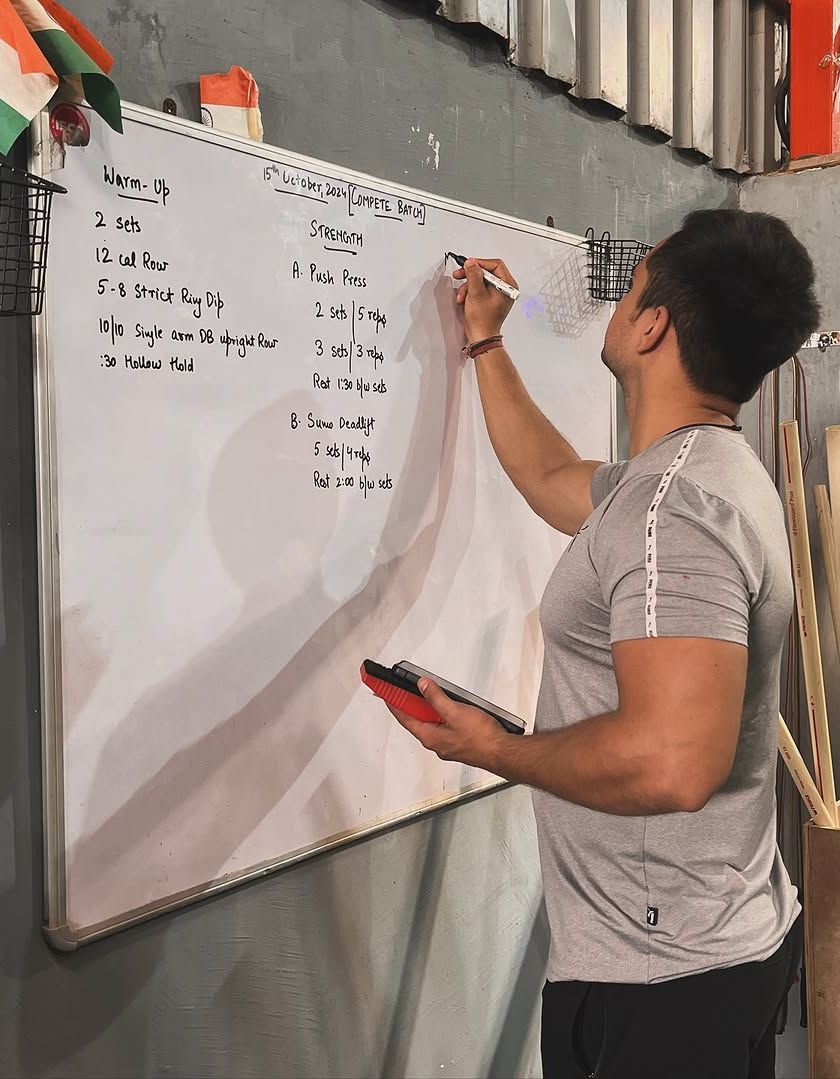 Warm-Up
2 sets
12 cal Row
5-8 Strict Ring Dip
10/10 Single arm DB upright Row
:30 Hollow Hold
15th October, 2024 [COMPETE BATCH]
STRENGTH
A. Push Press
2 sets/5 reps
3 sets/3 reps
Rest 1:30 b/w sets
B. Sumo Deadlift
5 sets/4 reps
Rest 2:00 b/w sets